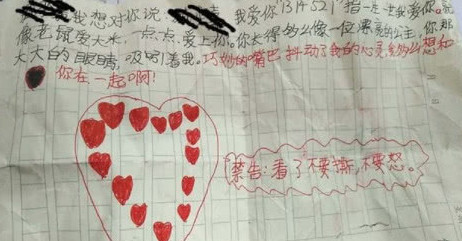 我想对你说: 我爱你1314521指一生一世我爱你。就
像老鼠爱大米,一点点,爱上你。你长得多么像一位漂亮的公主,你那
大大的眼睛,吸引着我。巧妙的嘴巴抖动了我的心灵多么想和
你在一起啊!
禁告:看了不要撕,不要怒。